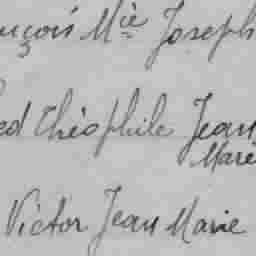 nçois Mie Joseph
ed Théophile Jean
Marie
Victor Jean Marie